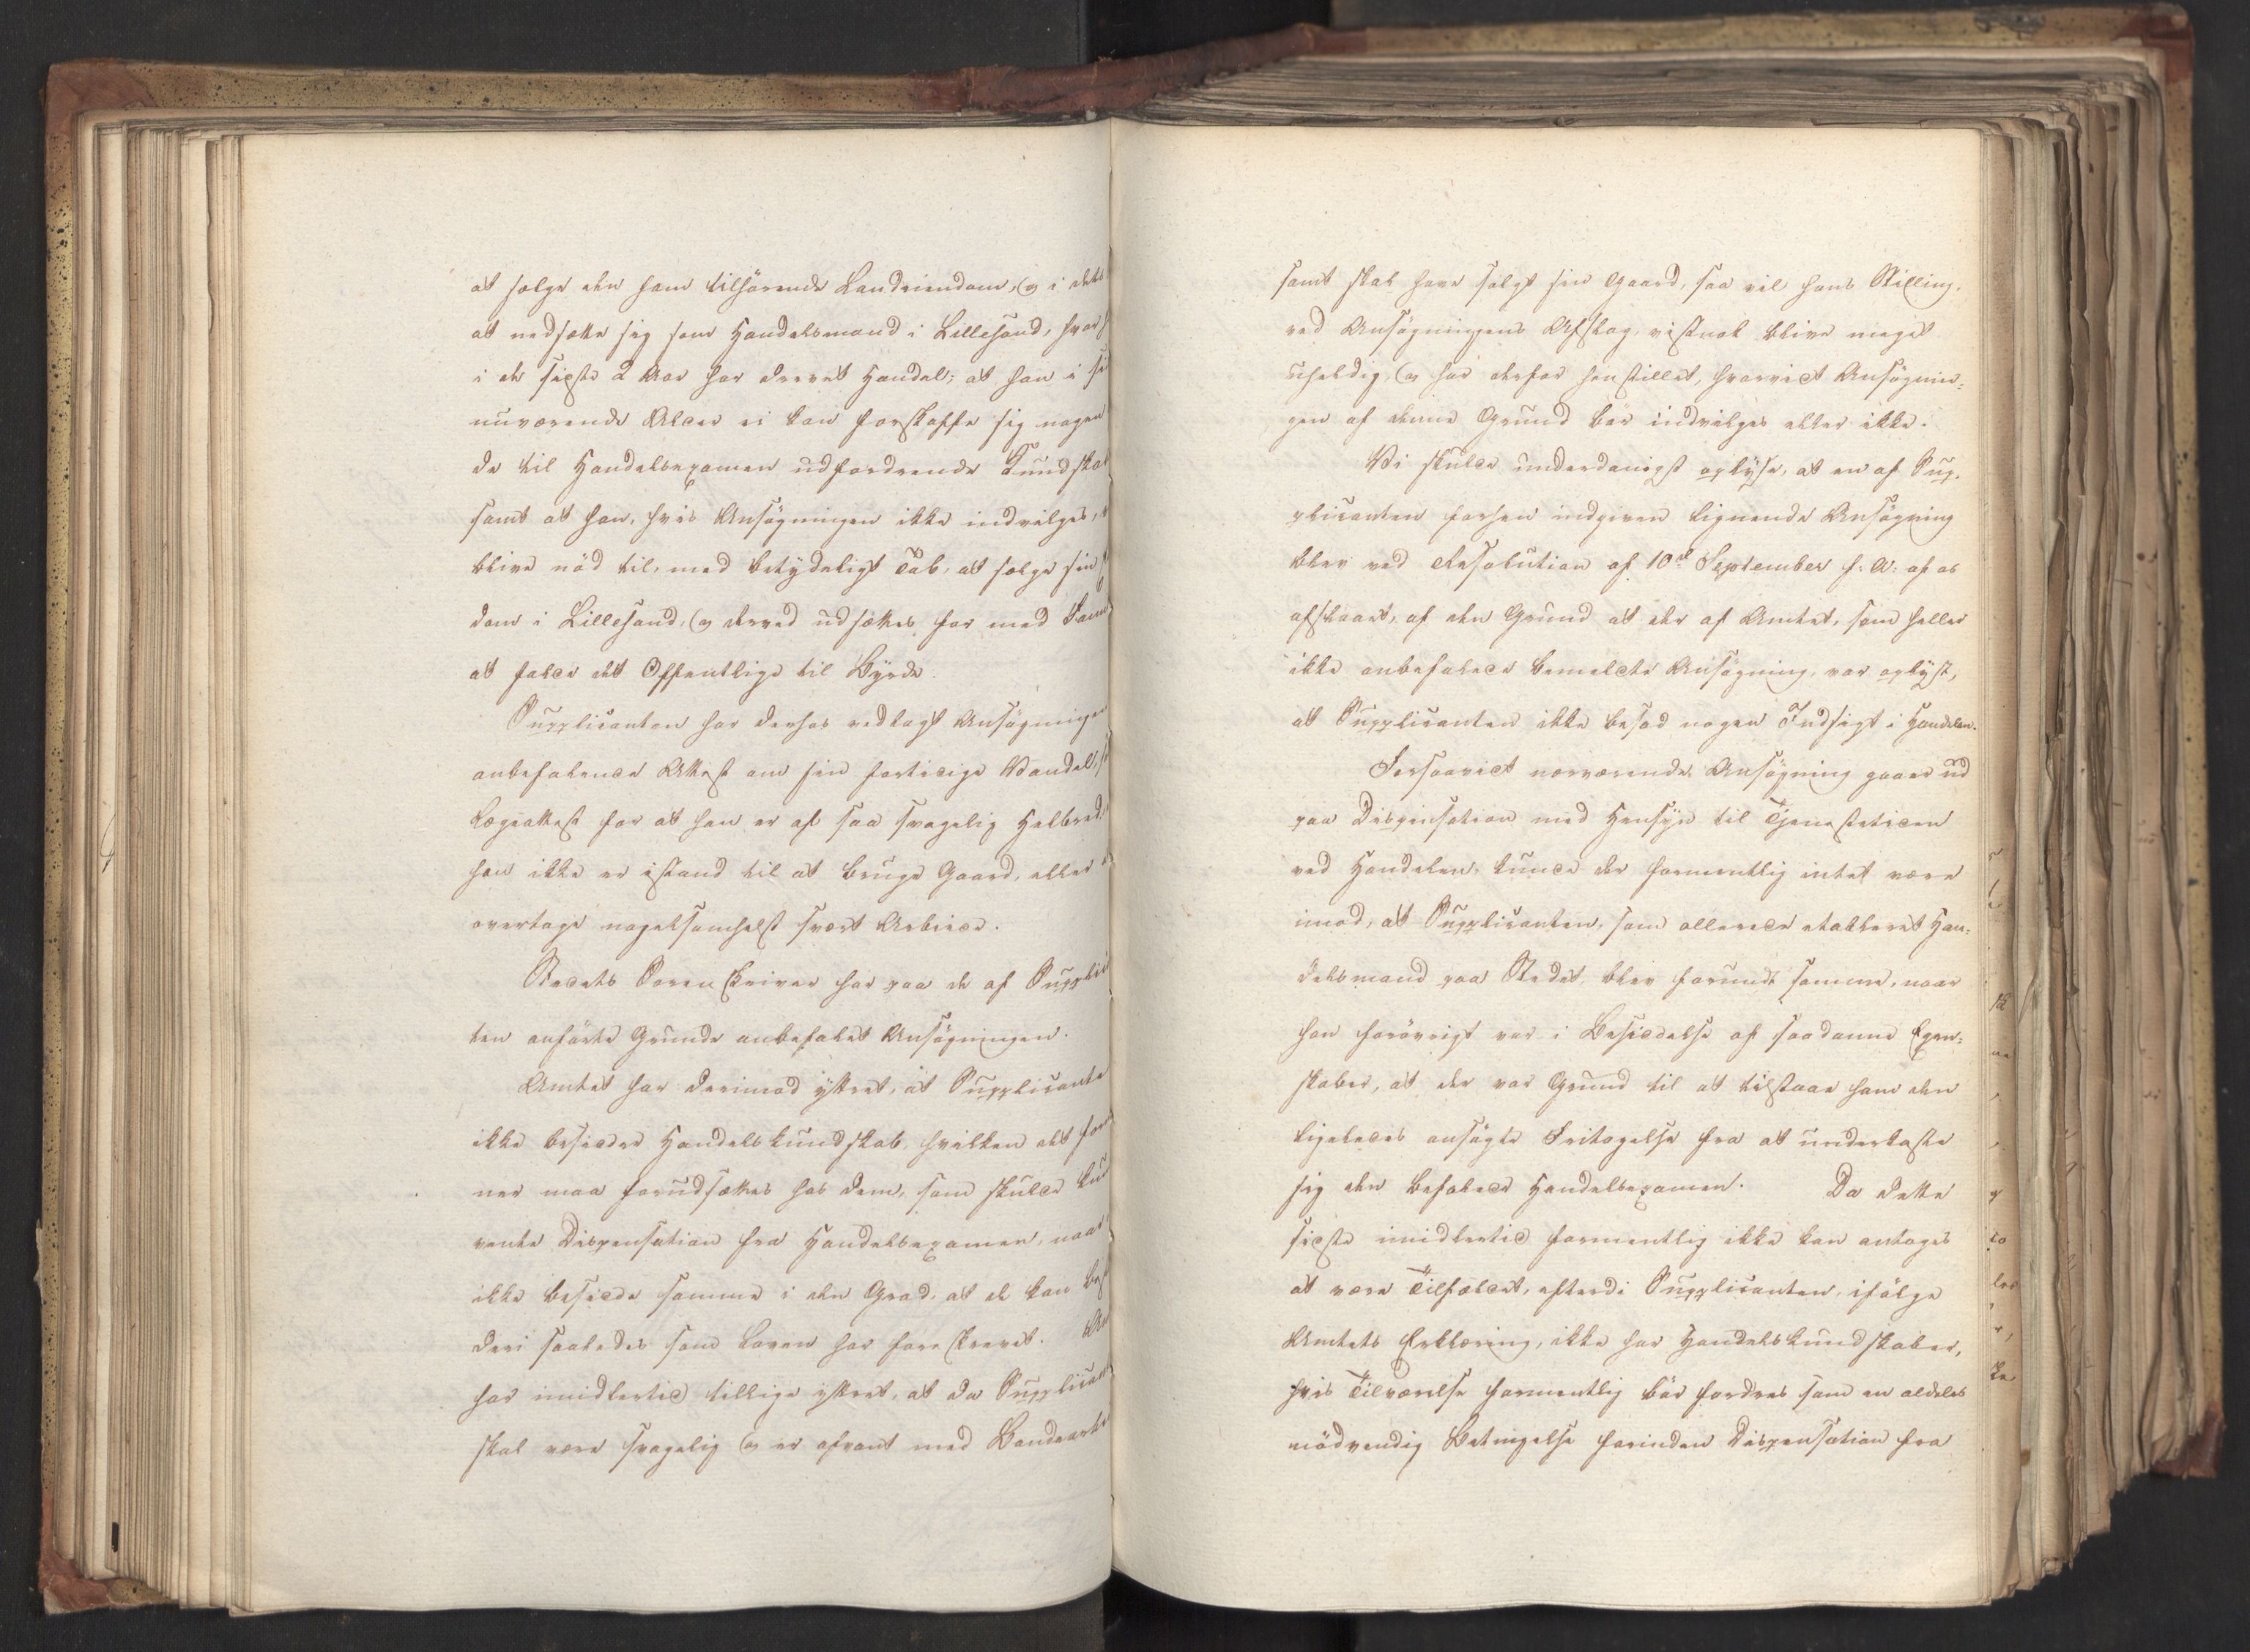 at sælge den ham tilhørende Landeiendom, og i dets
at nedsætte sig som Handelsmand i Lillesand, hvor h
i de sidste 2 Aar har drevet Handel; at han i si
nuværende Alder ei kan forskaffe sig nogen
de til Handelsexamen udfordrende Kundskab
samt at han, hvis Ansøgningen ikke indvilges,
blive nød til, med betydeligt Tab, at sælge sin
dom i Lillesand, og derved udsættes for med Fam
at falde det Offentlige til Byrde.
Supplicanten har derhos vedlagt Ansøgningen
anbefalende Attest om sin fortidige Vandel,
Lægeattest for at han er af saa svagelig Helbred,
han ikke er istand til at bruge Gaard, eller
overtage nogetsomhelst svært Arbeide.
Stedets Sorenskriver har paa de af Supplica
ten anførte Grunde anbefalet Ansøgningen.
Amtet har derimod yttret, at Supplicante
ikke besidder Handelskundskab, hvilken det for
ner maa forudsættes hos dem, som skulde kun
vente Dispensation fra Handelsexamen, naar
ikke besidde samme i den Grad, at de kan best
deri saaledes som Loven har foreskrevet. Am
har imidlertid tillige yttret, at da Supplican
skal være svagelig og er afvant med Bondearbe
samt skal have solgt sin Gaard, saa vil hans Stilling,
ved Ansøgningens Afslag, vistnok blive meget
uheldig, og har derfor henstillet, hvorvidt Ansøgnin=
gen af denne Grund bør indvilges eller ikke.
Vi skulde underdanigst oplyse, at en af Sup-
plicanten forhen indgiven lignende Ansøgning
blev ved Resolution af 10de September f: A: af os
afslaaet, af den Grund at der af Amtet, som heller
ikke anbefalede bemeldte Ansøgning, var oplyst,
at Supplicanten ikke besad nogen Indsigt i Handelen.
Forsaavidt nærværende Ansøgning gaaer ud
paa Dispensation med Hensyn til Tjenestetiden
ved Handelen, kunde der formentlig intet være
imod, at Supplicanten, som allerede etableret Han=
delsmand paa Stedet, blev forundt samme, naar
han forøvrigt var i Besiddelse af saadanne Egen=
skaber, at der var Grund til at tilstaae ham den
ligeledes ansøgte Fritagelse fra at underkaste
sig den befalede Handelsexamen. Da dette
sidste imidlertid formentlig ikke kan antages
at være Tilfældet, efterdi Supplicanten, ifølge
Amtets Erklæring, ikke har Handelskundskaber,
hvis Tilværelse formentlig bør fordres som en aldeles
nødvendig Betingelse forinden Dispensation fra